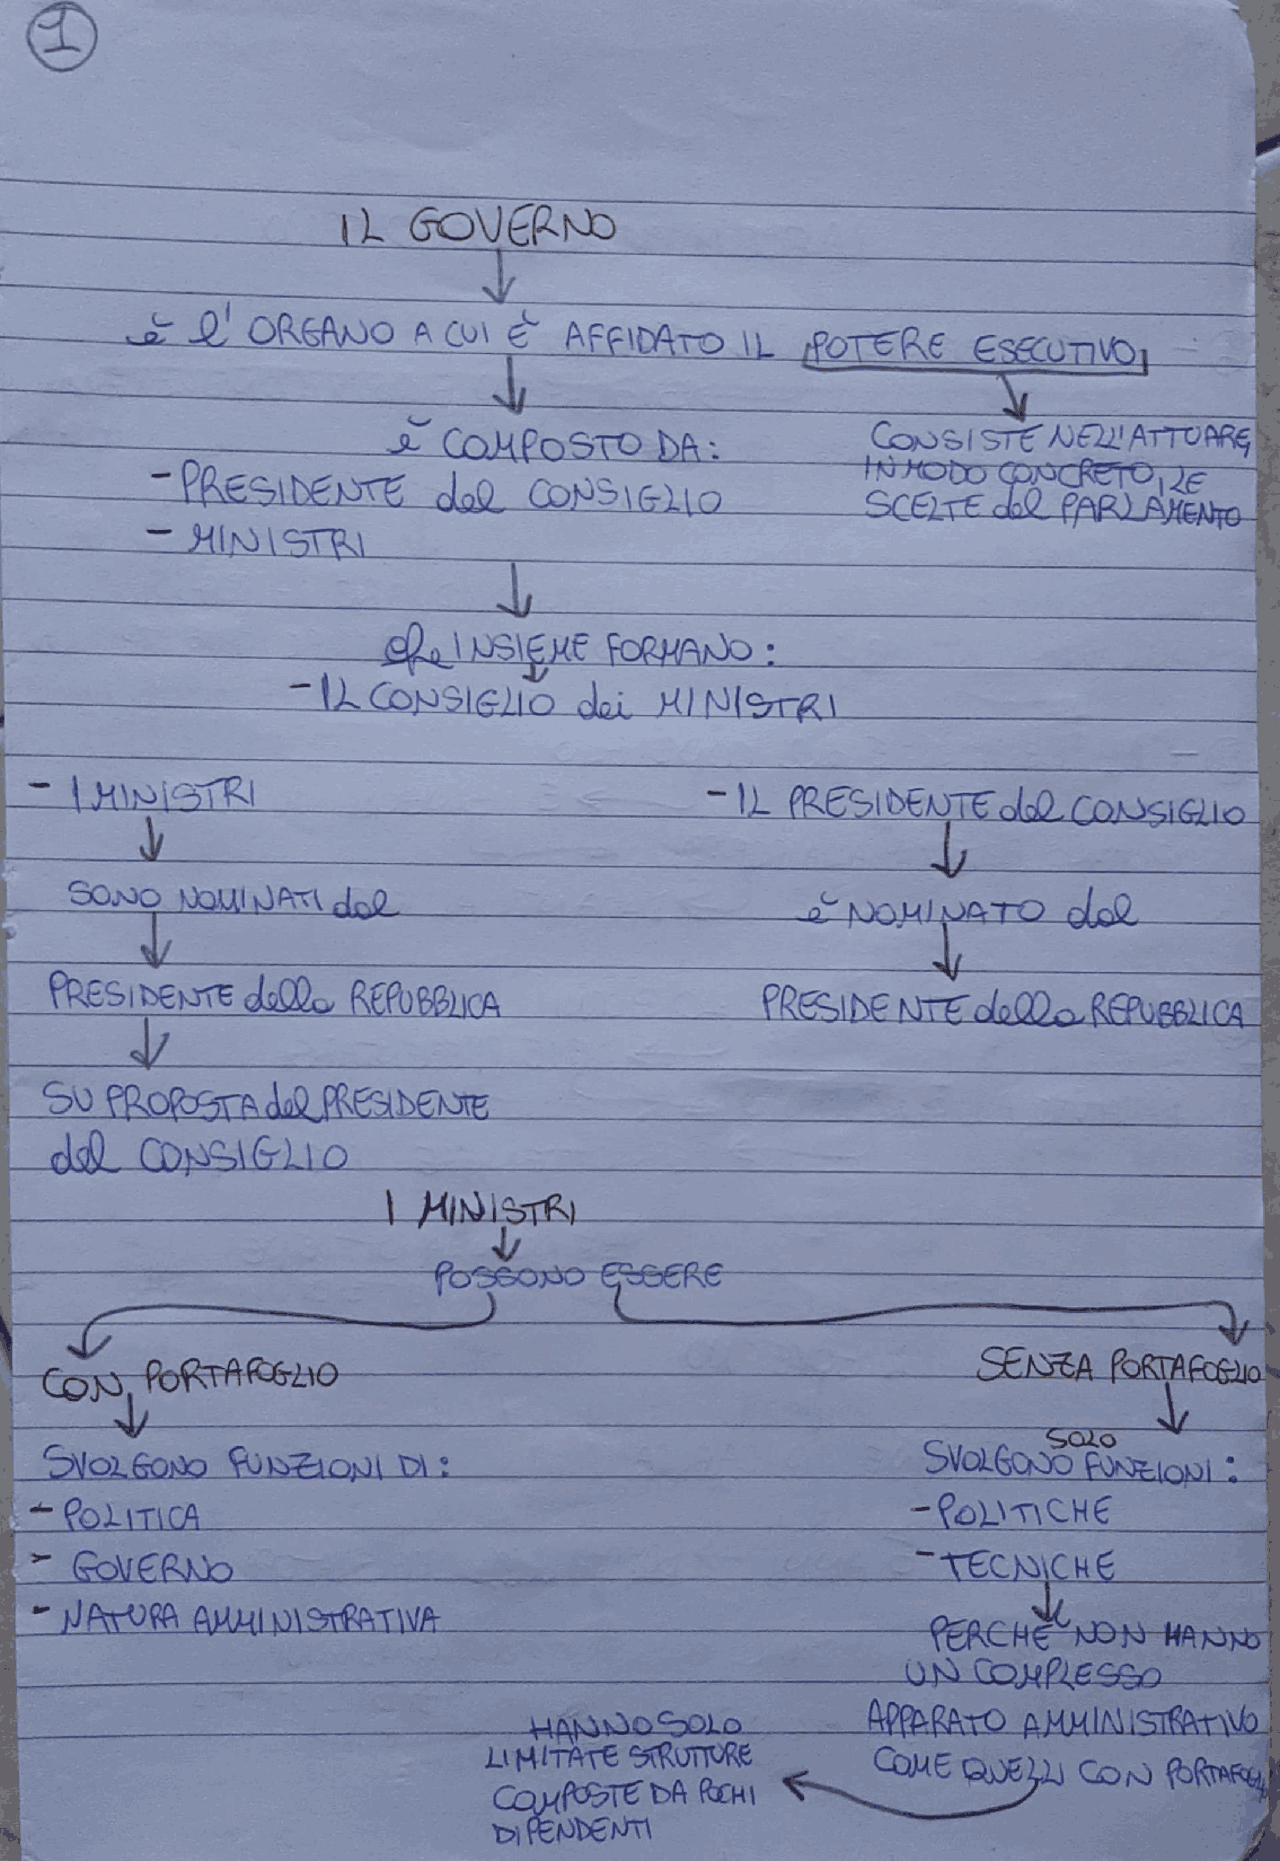 1
IL GOVERNO
è l'ORGANO A CUI È AFFIDATO IL POTERE ESECUTIVO
è COMPOSTO DA:
- PRESIDENTE del CONSIGLIO
- MINISTRI
CONSISTE NELL'ATTUARE,
IN MODO CONCRETO, LE
SCELTE del PARLAMENTO
che INSIEME FORMANO:
- IL CONSIGLIO dei MINISTRI
- I MINISTRI
SONO NOMINATI dal
PRESIDENTE della REPUBBLICA
SU PROPOSTA del PRESIDENTE
del CONSIGLIO
- IL PRESIDENTE del CONSIGLIO
è NOMINATO dal
PRESIDENTE della REPUBBLICA
I MINISTRI
POSSONO ESSERE
CON PORTAFOGLIO
SVOLGONO FUNZIONI DI:
- POLITICA
- GOVERNO
- NATURA AMMINISTRATIVA
SENZA PORTAFOGLIO
SOLO
SVOLGONO FUNZIONI:
- POLITICHE
- TECNICHE
PERCHÈ NON HANNO
UN COMPLESSO
APPARATO AMMINISTRATIVO
COME QUELLI CON PORTAFOGLI
HANNO SOLO
LIMITATE STRUTTURE
COMPOSTE DA POCHI
DIPENDENTI